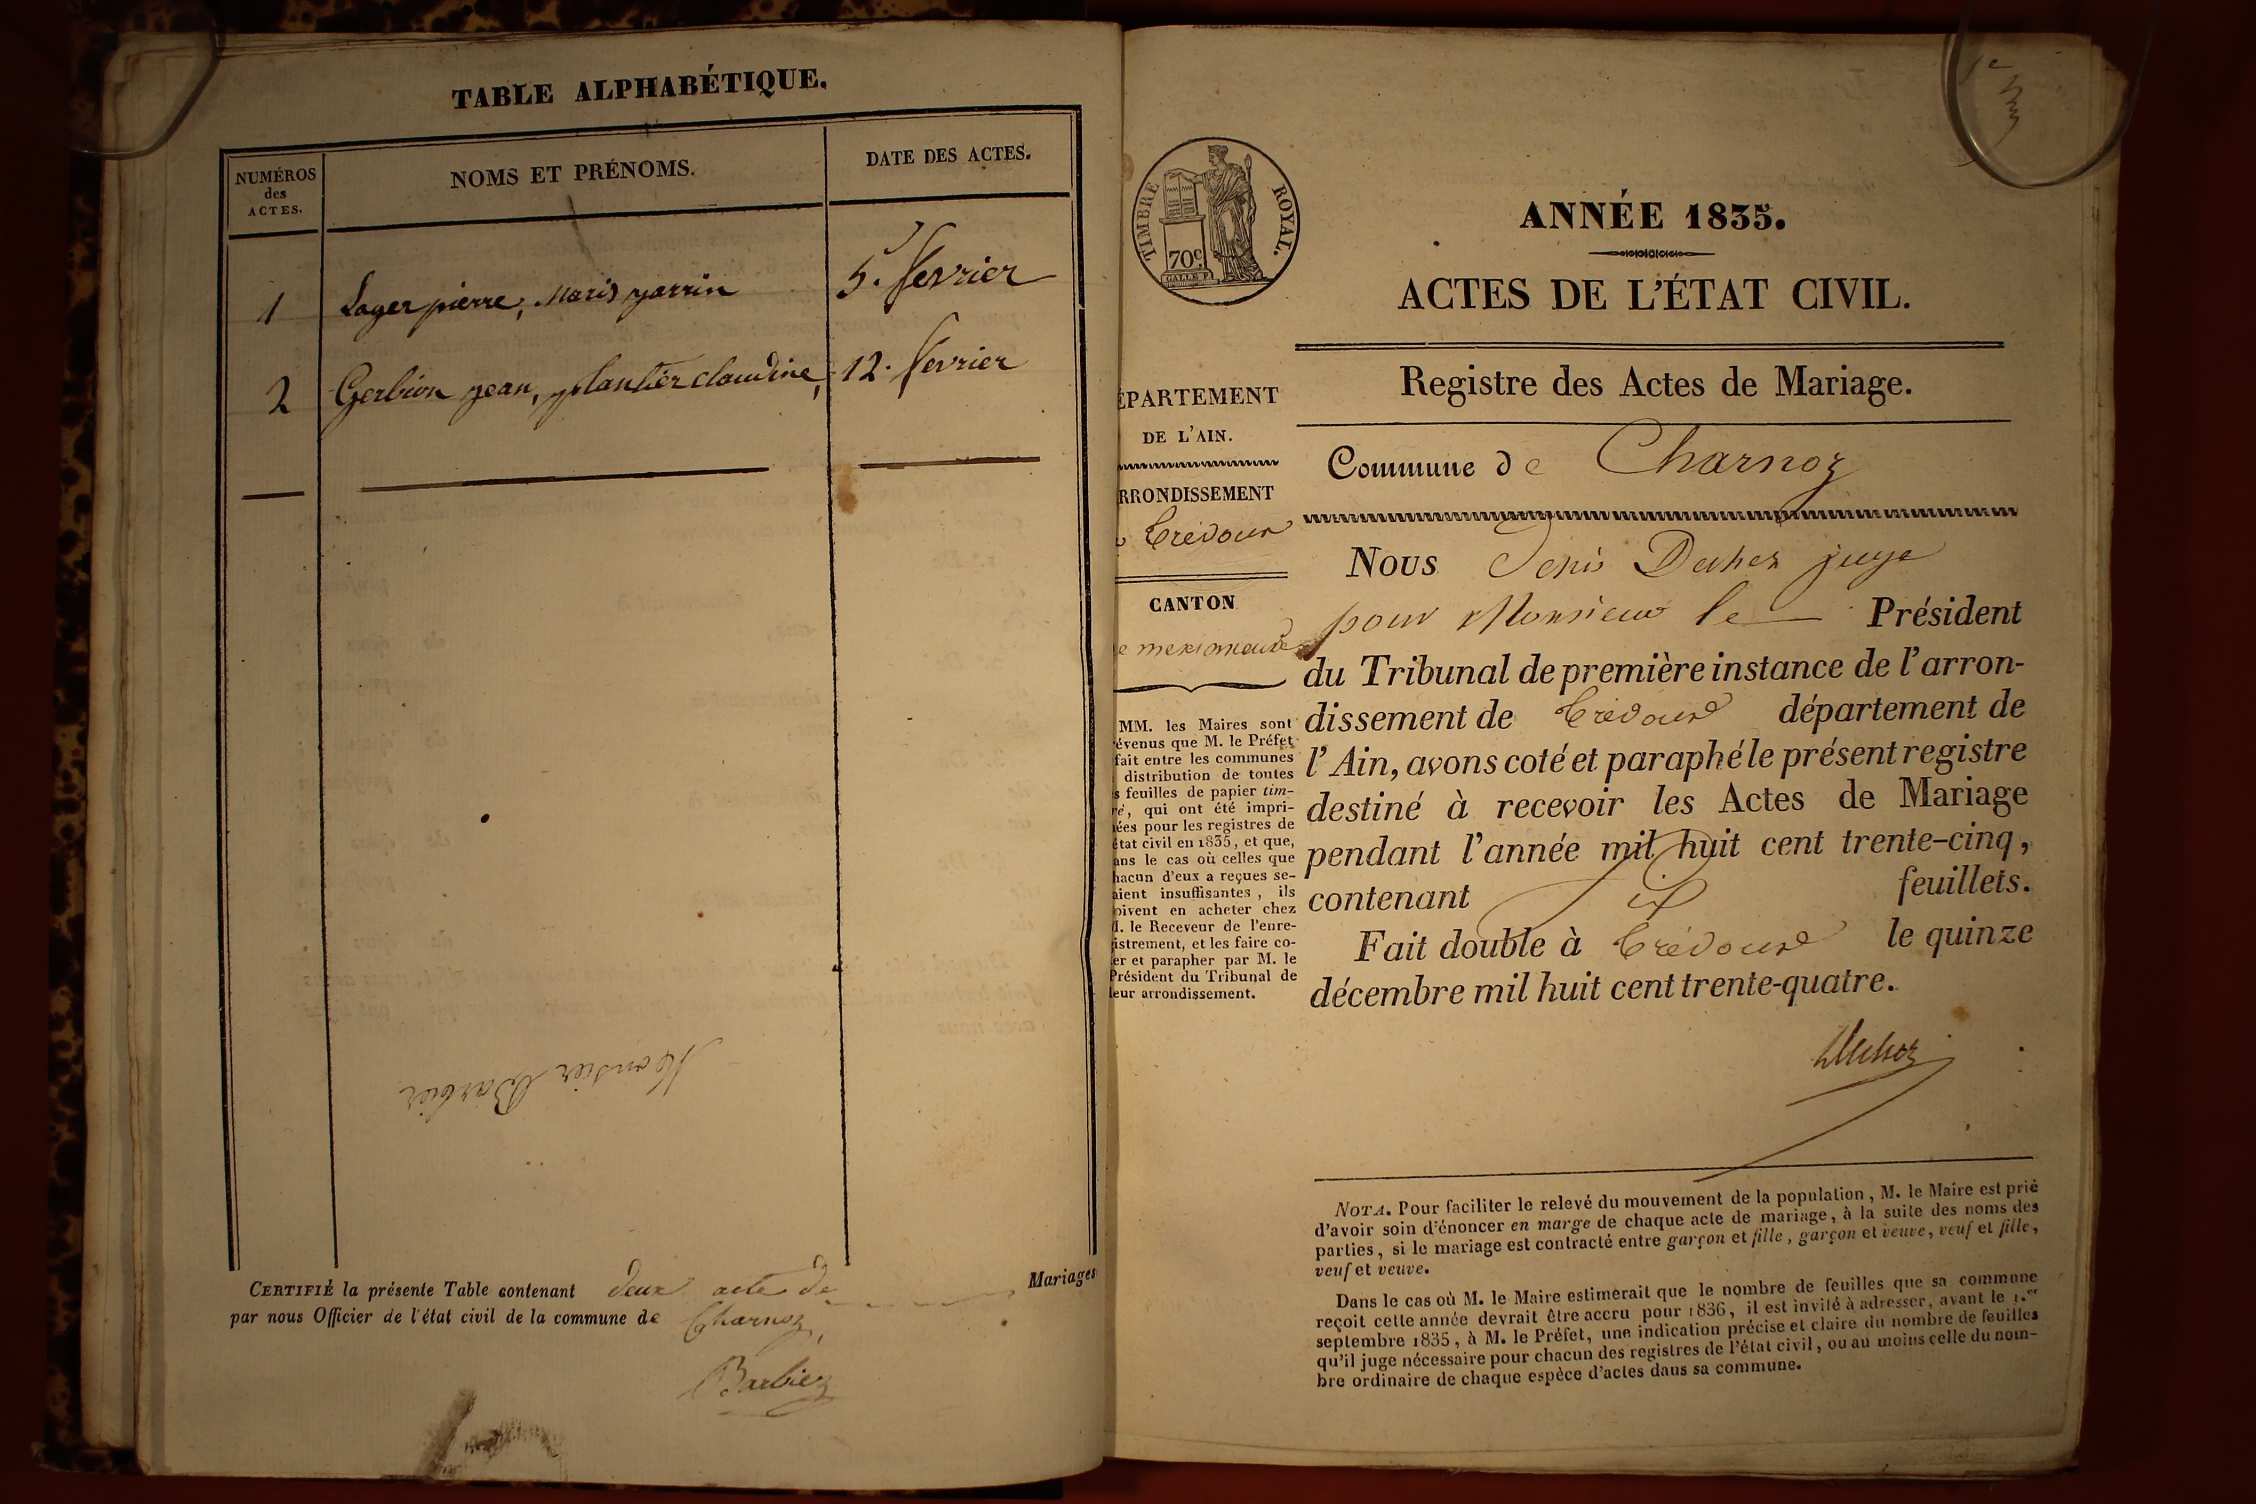 TABLE ALPHABÉTIQUE.
NUMÉROS
des
ACTES.
NOMS ET PRÉNOMS.
DATE DES ACTES.
1 Lager pierre, Maris parrin 5. fevrier
2 Gerbion jean, plantier claudine, 12. fevrier
Monsier Barbier
CERTIFIÉ la présente Table contenant deux acte de Mariages
par nous Officier de l'état civil de la commune de Charnoz,
Barbier
TIMBRE ROYAL.
70c
ANNÉE 1835.
ACTES DE L'ÉTAT CIVIL.
Registre des Actes de Mariage.
ÉPARTEMENT
DE L'AIN.
RRONDISSEMENT
Trévoux
CANTON
e meximieux
MM. les Maires sont
évenus que M. le Préfet
fait entre les communes
distribution de toutes
s feuilles de papier tim-
ré, qui ont été impri-
ées pour les registres de
état civil en 1835, et que,
ans le cas où celles que
hacun d'eux a reçues se-
aient insuffisantes, ils
oivent en acheter chez
M. le Receveur de l'enre-
istrement, et les faire co-
er et parapher par M. le
Président du Tribunal de
leur arrondissement.
Commune de Charnoz
Nous Denis Duhez juge
pour Monsieur le Président
du Tribunal de première instance de l'arron-
dissement de Trévoux département de
l'Ain, avons coté et paraphé le présent registre
destiné à recevoir les Actes de Mariage
pendant l'année mil huit cent trente-cinq,
contenant six feuillets.
Fait double à Trévoux le quinze
décembre mil huit cent trente-quatre.
NOTA. Pour faciliter le relevé du mouvement de la population, M. le Maire est prié
d'avoir soin d'énoncer en marge de chaque acte de mariage, à la suite des noms des
parties, si le mariage est contracté entre garçon et fille, garçon et veuve, veuf et fille,
veuf et veuve.
Dans le cas où M. le Maire estimerait que le nombre de feuilles que sa commune
reçoit cette année devrait être accru pour 1836, il est invité à adresser, avant le 1.er
septembre 1835, à M. le Préfet, une indication précise et claire du nombre de feuilles
qu'il juge nécessaire pour chacun des registres de l'état civil, ou au moins celle du nom-
bre ordinaire de chaque espèce d'actes dans sa commune.